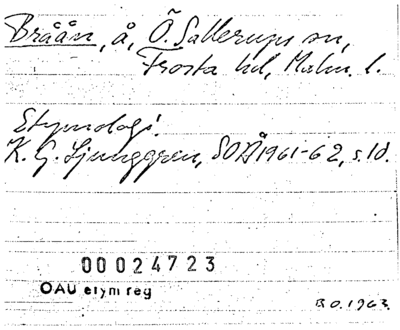 Bråån, å, Ö. Sallerups sn,
Frosta hd, Malm. l.
Etymologi.
K. G. Ljunggren, SOÅ 1961-62, s. 10.
00024723
OAU etym reg
B.O. 1963.